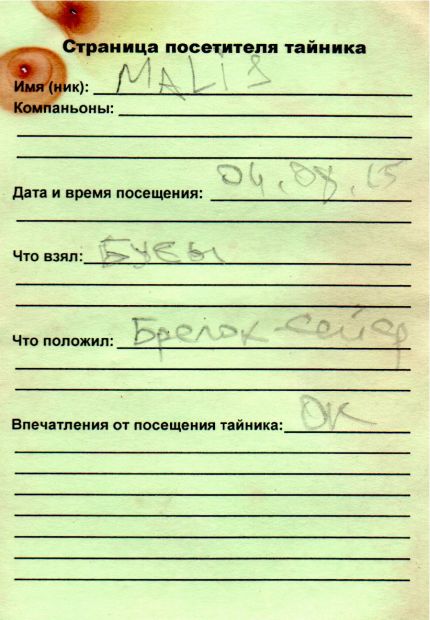 Страница посетителя тайника
Имя (ник): MALIS
Компаньоны:
Дата и время посещения: 04.08.15
Что взял: Бусы
Что положил: Брелок-сейф
Впечатления от посещения тайника: OK